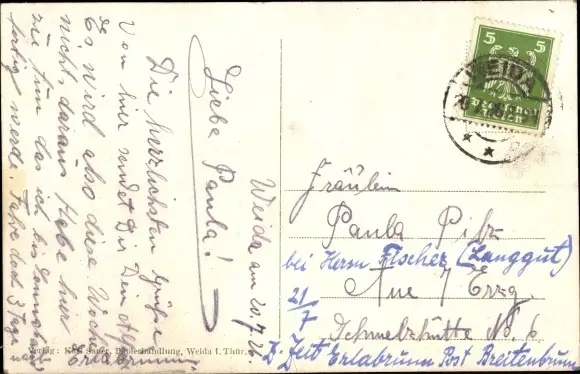 Weida am 20.7.25
Liebe Paula!
Die herzlichsten Grüße
von hier sendet Dir Dein Alfred
Es wird also diese Woche
nichts daraus. Habe hier
zu tun das ich bis Sonnabend
fertig werde. Fahre dach 3 Tage nach
Erlabrunn.
5 5
DEUTSCHES REICH
WEIDA
* *
Fräulein
Paula Pilz
bei Herrn Fischer (Langgut)
Aue / Erzg.
21/7
Schmelzhütte No. 6
z. Zeit Erlabrunn Post Breitenbrunn
Verlag: Karl Sauer, Papierhandlung, Weida i. Thür.